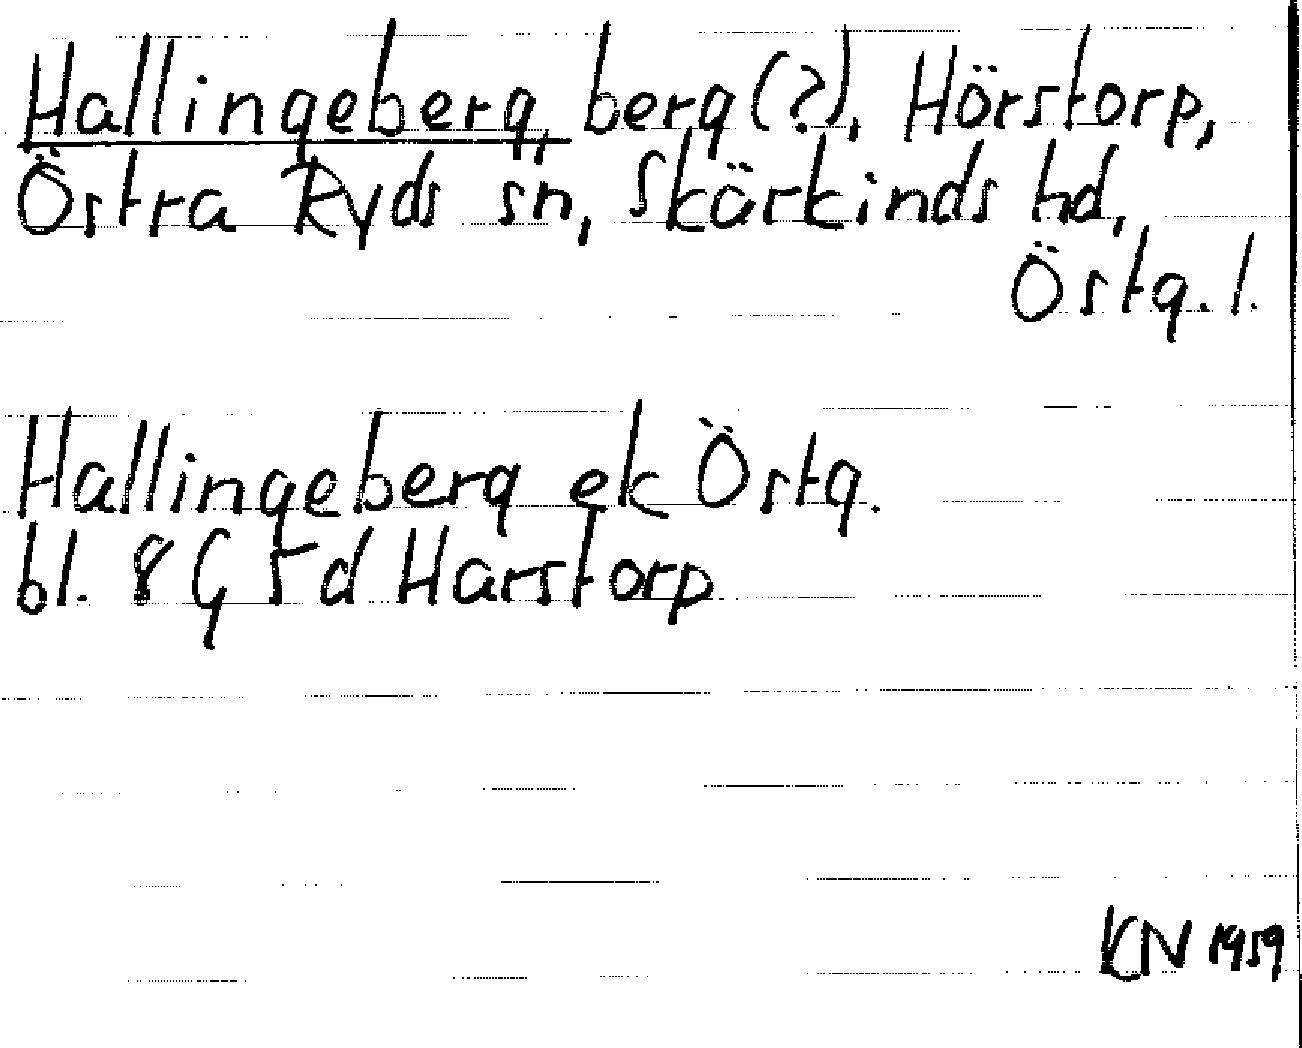 Hallingeberg, berg (?), Hörstorp,
Östra Ryds sn, Skärkinds hd,
Östg. l.
Hallingeberg ek Östg.
bl. 8 G 5 d Harstorp
KN 1959